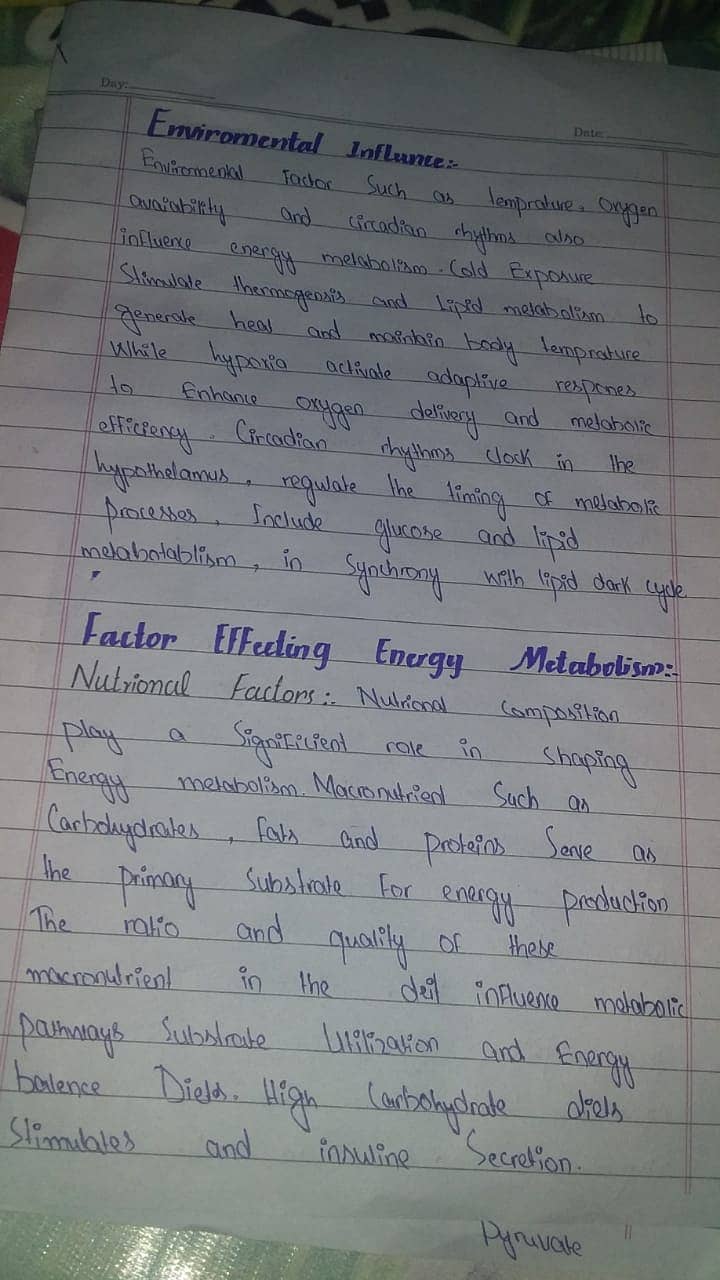 Day:
Date:
Enviromental Influnce:-
Enviromental Factor Such as temprature, oxygen
avaiability and circadian rhythms also
influence energy metabolism. Cold Exposure
Stimulate thermogensis and Lipid metabolism to
generate heat and maintain body temprature
While hypoxia activate adaptive respones
to Enhance oxygen delivery and metabolic
efficiency. Circadian rhythms clock in the
hypothelamus, regulate the timing of metabolic
Processes, Include glucose and lipid
metabotablism, in Synchrony with lipid dark cycle
Factor Effecting Energy Metabolism:-
Nutrional Factors:- Nutrional composition
play a Significient role in shaping
Energy metabolism. Macronutrient Such as
Carbohydrates, fats and proteins Serve as
the primary Substrate For energy production
The ratio and quality of these
macronutrient in the deit influence matabolic
pathways Substrate Utilization and Energy
balence Dields. High Carbohydrate diets
Stimulates and insuline Secretion.
Pyruvate